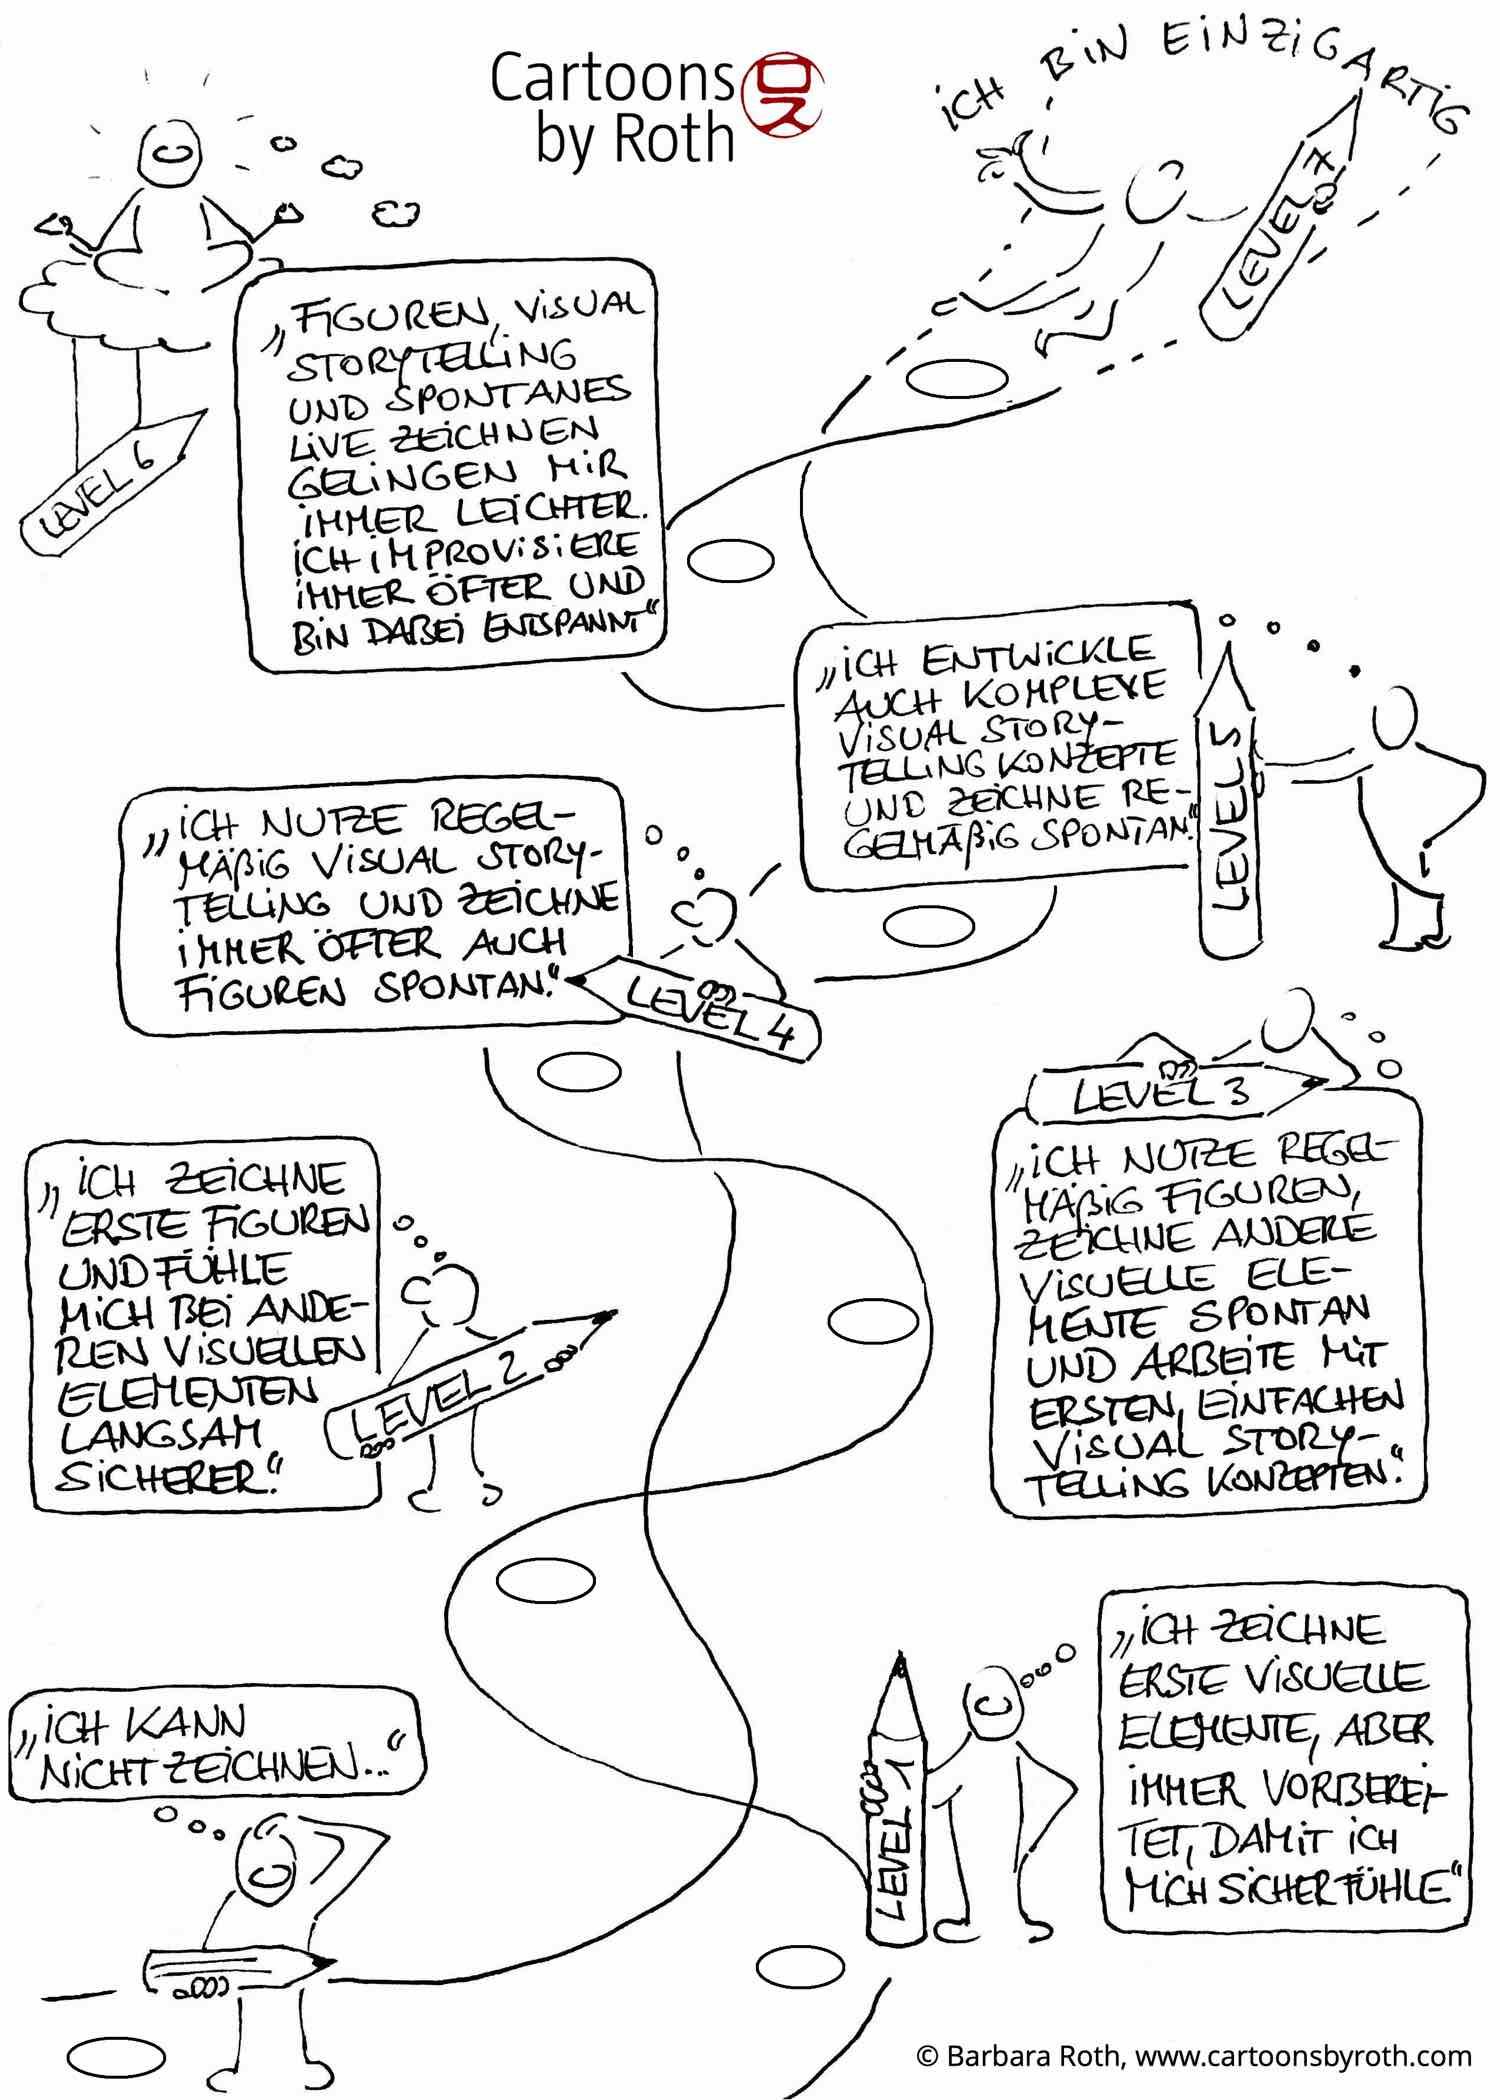 Cartoons
by Roth
ICH BIN EINZIGARTIG
LEVEL 7
„FIGUREN, VISUAL
STORYTELLING
UND SPONTANES
LIVE ZEICHNEN
GELINGEN MIR
IMMER LEICHTER.
ICH IMPROVISIERE
IMMER ÖFTER UND
BIN DABEI ENTSPANNT“
LEVEL 6
„ICH ENTWICKLE
AUCH KOMPLEXE
VISUAL STORY-
TELLING KONZEPTE
UND ZEICHNE RE-
GELMÄßIG SPONTAN.“
LEVEL 5
„ICH NUTZE REGEL-
MÄßIG VISUAL STORY-
TELLING UND ZEICHNE
IMMER ÖFTER AUCH
FIGUREN SPONTAN.“
LEVEL 4
LEVEL 3
„ICH NUTZE REGEL-
MÄßIG FIGUREN,
ZEICHNE ANDERE
VISUELLE ELE-
MENTE SPONTAN
UND ARBEITE MIT
ERSTEN, EINFACHEN
VISUAL STORY-
TELLING KONZEPTEN.“
„ICH ZEICHNE
ERSTE FIGUREN
UND FÜHLE
MICH BEI ANDE-
REN VISUELLEN
ELEMENTEN
LANGSAM
SICHERER.“
LEVEL 2
„ICH ZEICHNE
ERSTE VISUELLE
ELEMENTE, ABER
IMMER VORBEREI-
TET, DAMIT ICH
MICH SICHER FÜHLE“
LEVEL 1
„ICH KANN
NICHT ZEICHNEN...“
© Barbara Roth, www.cartoonsbyroth.com